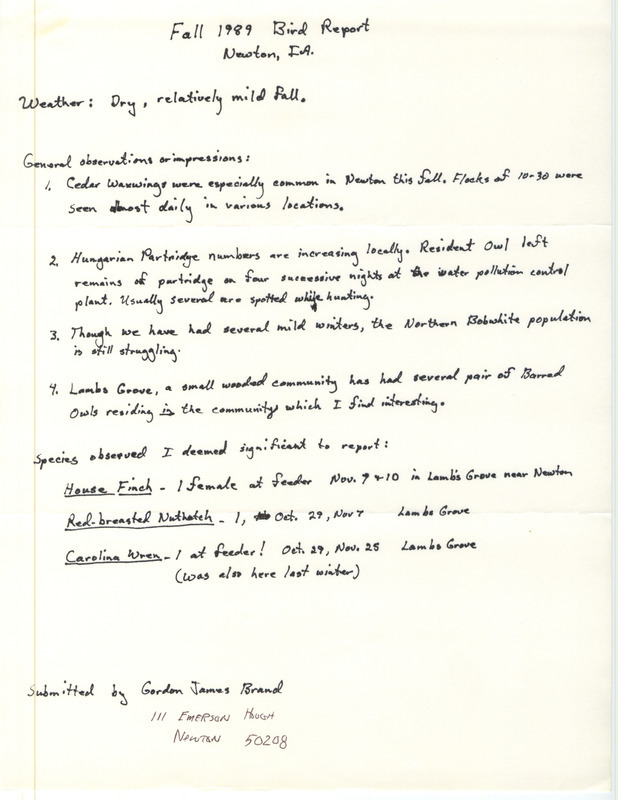 Fall 1989 Bird Report
Newton, IA.
Weather: Dry, relatively mild fall.
General observations or impressions:
1. Cedar Waxwings were especially common in Newton this fall. Flocks of 10-30 were
seen almost daily in various locations.
2. Hungarian Partridge numbers are increasing locally. Resident Owl left
remains of partridge on four successive nights at the water pollution control
plant. Usually several are spotted while hunting.
3. Though we have had several mild winters, the Northern Bobwhite population
is still struggling.
4. Lambs Grove, a small wooded community has had several pair of Barred
Owls residing in the community which I find interesting.
Species observed I deemed significant to report:
House Finch - 1 female at feeder Nov. 9 & 10 in Lamb's Grove near Newton
Red-breasted Nuthatch - 1, Oct. 29, Nov 7 Lambs Grove
Carolina Wren - 1 at feeder! Oct. 29, Nov. 25 Lambs Grove
(was also here last winter)
Submitted by Gordon James Brand
111 EMERSON HOUGH
NEWTON 50208